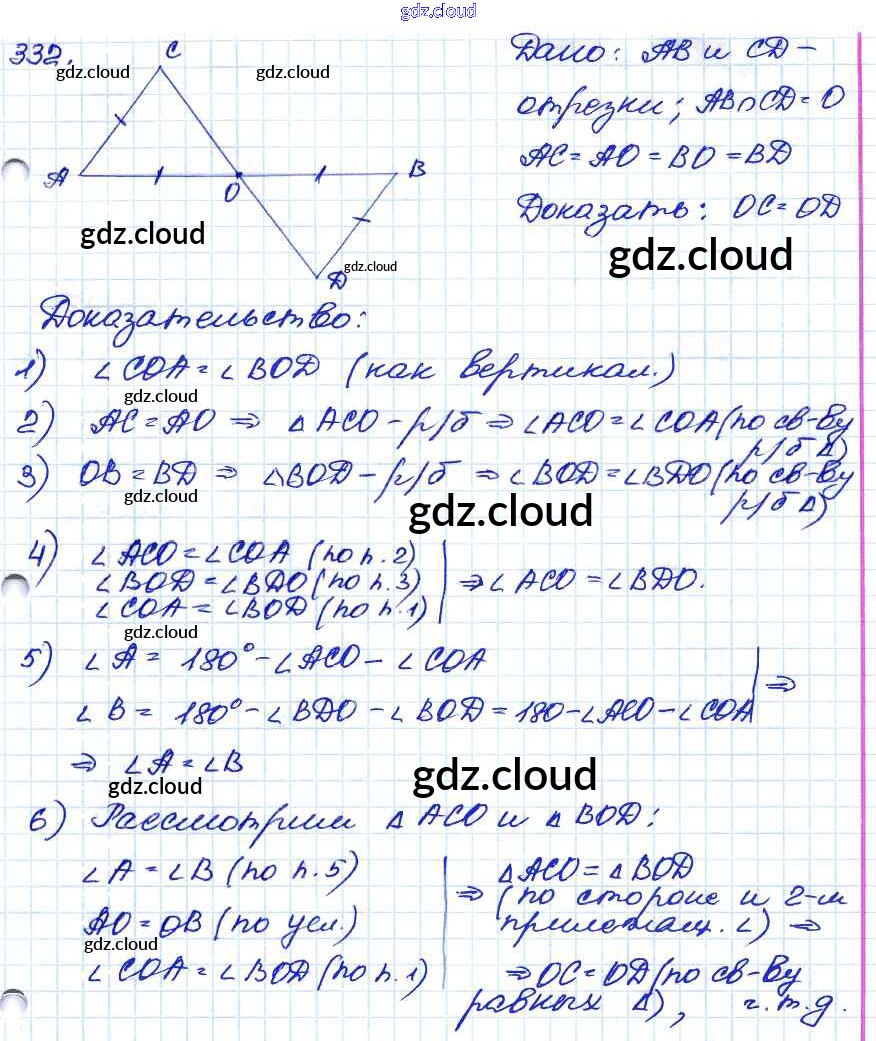 gdz.cloud
332.
C
Дано: AB и CD -
gdz.cloud gdz.cloud
отрезки; AB∩CD = O
A O B
AC = AO = BO = BD
Доказать: OC = OD
gdz.cloud
gdz.cloud
gdz.cloud
D
Доказательство:
1) ∠COA = ∠BOD (как вертикал.)
gdz.cloud
2) AC = AO ⇒ △ACO - р/б ⇒ ∠ACO = ∠COA (по св-ву
р/б △)
3) OB = BD ⇒ △BOD - р/б ⇒ ∠BOD = ∠BDO (по св-ву
р/б △)
gdz.cloud
gdz.cloud
4) ∠ACO = ∠COA (по п. 2)
∠BOD = ∠BDO (по п. 3) ⇒ ∠ACO = ∠BDO.
∠COA = ∠BOD (по п. 1)
gdz.cloud
5) ∠A = 180° - ∠ACO - ∠COA
∠B = 180° - ∠BDO - ∠BOD = 180 - ∠ACO - ∠COA ⇒
⇒ ∠A = ∠B
gdz.cloud
gdz.cloud
6) Рассмотрим △ACO и △BOD:
∠A = ∠B (по п. 5)
AO = OB (по усл.)
gdz.cloud
∠COA = ∠BOD (по п. 1)
⇒ △ACO = △BOD
(по стороне и 2-м
прилежащ. ∠) ⇒
⇒ OC = OD (по св-ву
равных △), ч.т.д.